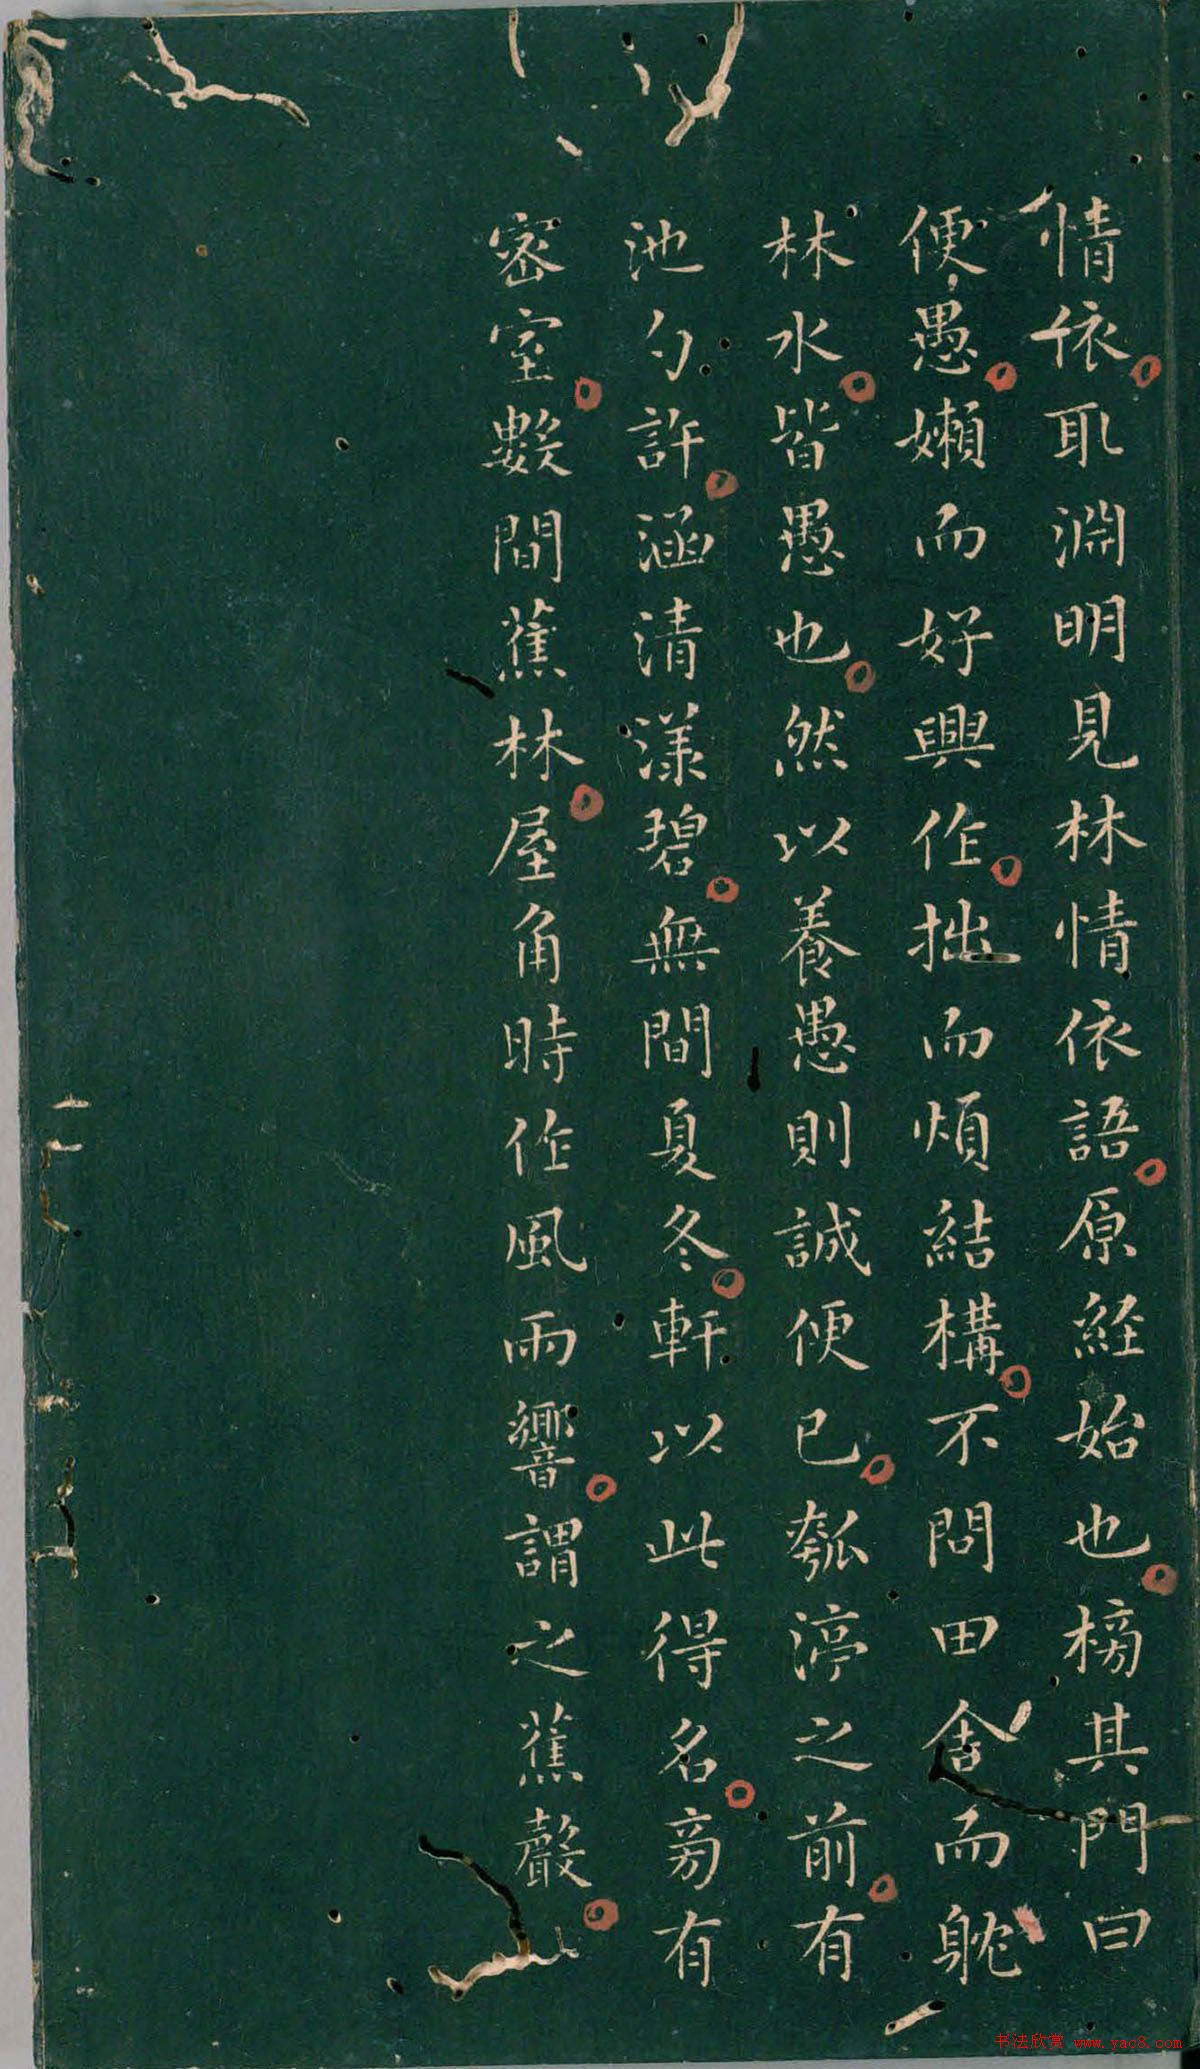 情依取淵明見林情依語原經始也榜其門曰
便愚嬾而好興作拙而煩結構不問田舍而躭
林水皆愚也然以養愚則誠便已瓠渟之前有
池勺許涵清漾碧無間夏冬軒以此得名旁有
密室數間蕉林屋角時作風雨響謂之蕉聲
书法欣赏 www.yac8.com